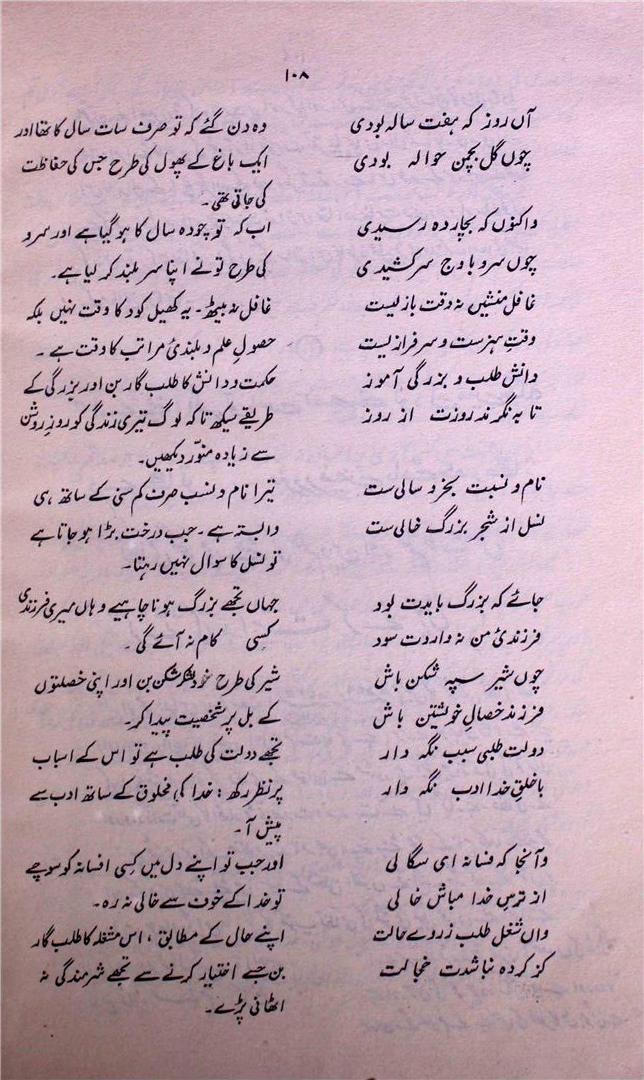 ۱۰۸
آں روز کہ ہفت سالہ بودی
چوں گل بچمن حوالہ بودی
واکنوں کہ بچاردہ رسیدی
چوں سرو باوج سرکشیدی
غافل منشیں نہ وقت بازلیست
وقتِ ہنرست و سرفرازلیست
دانش طلب و بزرگی آموز
تا بہ نگرند روزت از روز
نام و نسبت بخرد سالی ست
نسل از شجر بزرگ خالی ست
جائے کہ بزرگ بایدت بود
فرزندیٔ من نہ واردت سود
چوں شیر سپہ شکن باش
فرزندِ خصالِ خویشتن باش
دولت طلبی سبب نگہ دار
باخلقِ خدا ادب نگہ دار
وآنجا کہ فسانہ ای سگالی
از ترسِ خدا مباش خالی
واں شغل طلب زروے حالت
کز کردہ نباشدت خجالت
وہ دن گئے کہ تو صرف سات سال کا تھا اور
ایک باغ کے پھول کی طرح جس کی حفاظت
کی جاتی تھی۔
اب کہ تو چودہ سال کا ہو گیا ہے اور سرو
کی طرح تو نے اپنا سر بلند کر لیا ہے۔
غافل نہ بیٹھ۔ یہ کھیل کود کا وقت نہیں بلکہ
حصولِ علم و بلندیٔ مراتب کا وقت ہے۔
حکمت و دانش کا طلب گار بن اور بزرگی کے
طریقے سیکھ تاکہ لوگ تیری زندگی کو روزِ روشن
سے زیادہ منوّر دیکھیں۔
تیرا نام و نسب صرف کم سنی کے ساتھ ہی
وابستہ ہے۔ جب درخت بڑا ہو جاتا ہے
تو نسل کا سوال نہیں رہتا۔
جہاں تجھے بزرگ ہونا چاہیے وہاں میری فرزندی
کسی کام نہ آئے گی۔
شیر کی طرح خود لشکر شکن بن اور اپنی خصلتوں
کے بل پر شخصیت پیدا کر۔
تجھے دولت کی طلب ہے تو اس کے اسباب
پر نظر رکھ : خدا کی مخلوق کے ساتھ ادب سے
پیش آ۔
اور جب تو اپنے دل میں کسی افسانہ کو سوچے
تو خدا کے خوف سے خالی نہ رہ۔
اپنے حال کے مطابق، اس مشغلہ کا طلب گار
بن جسے اختیار کرنے سے تجھے شرمندگی نہ
اٹھانی پڑے۔